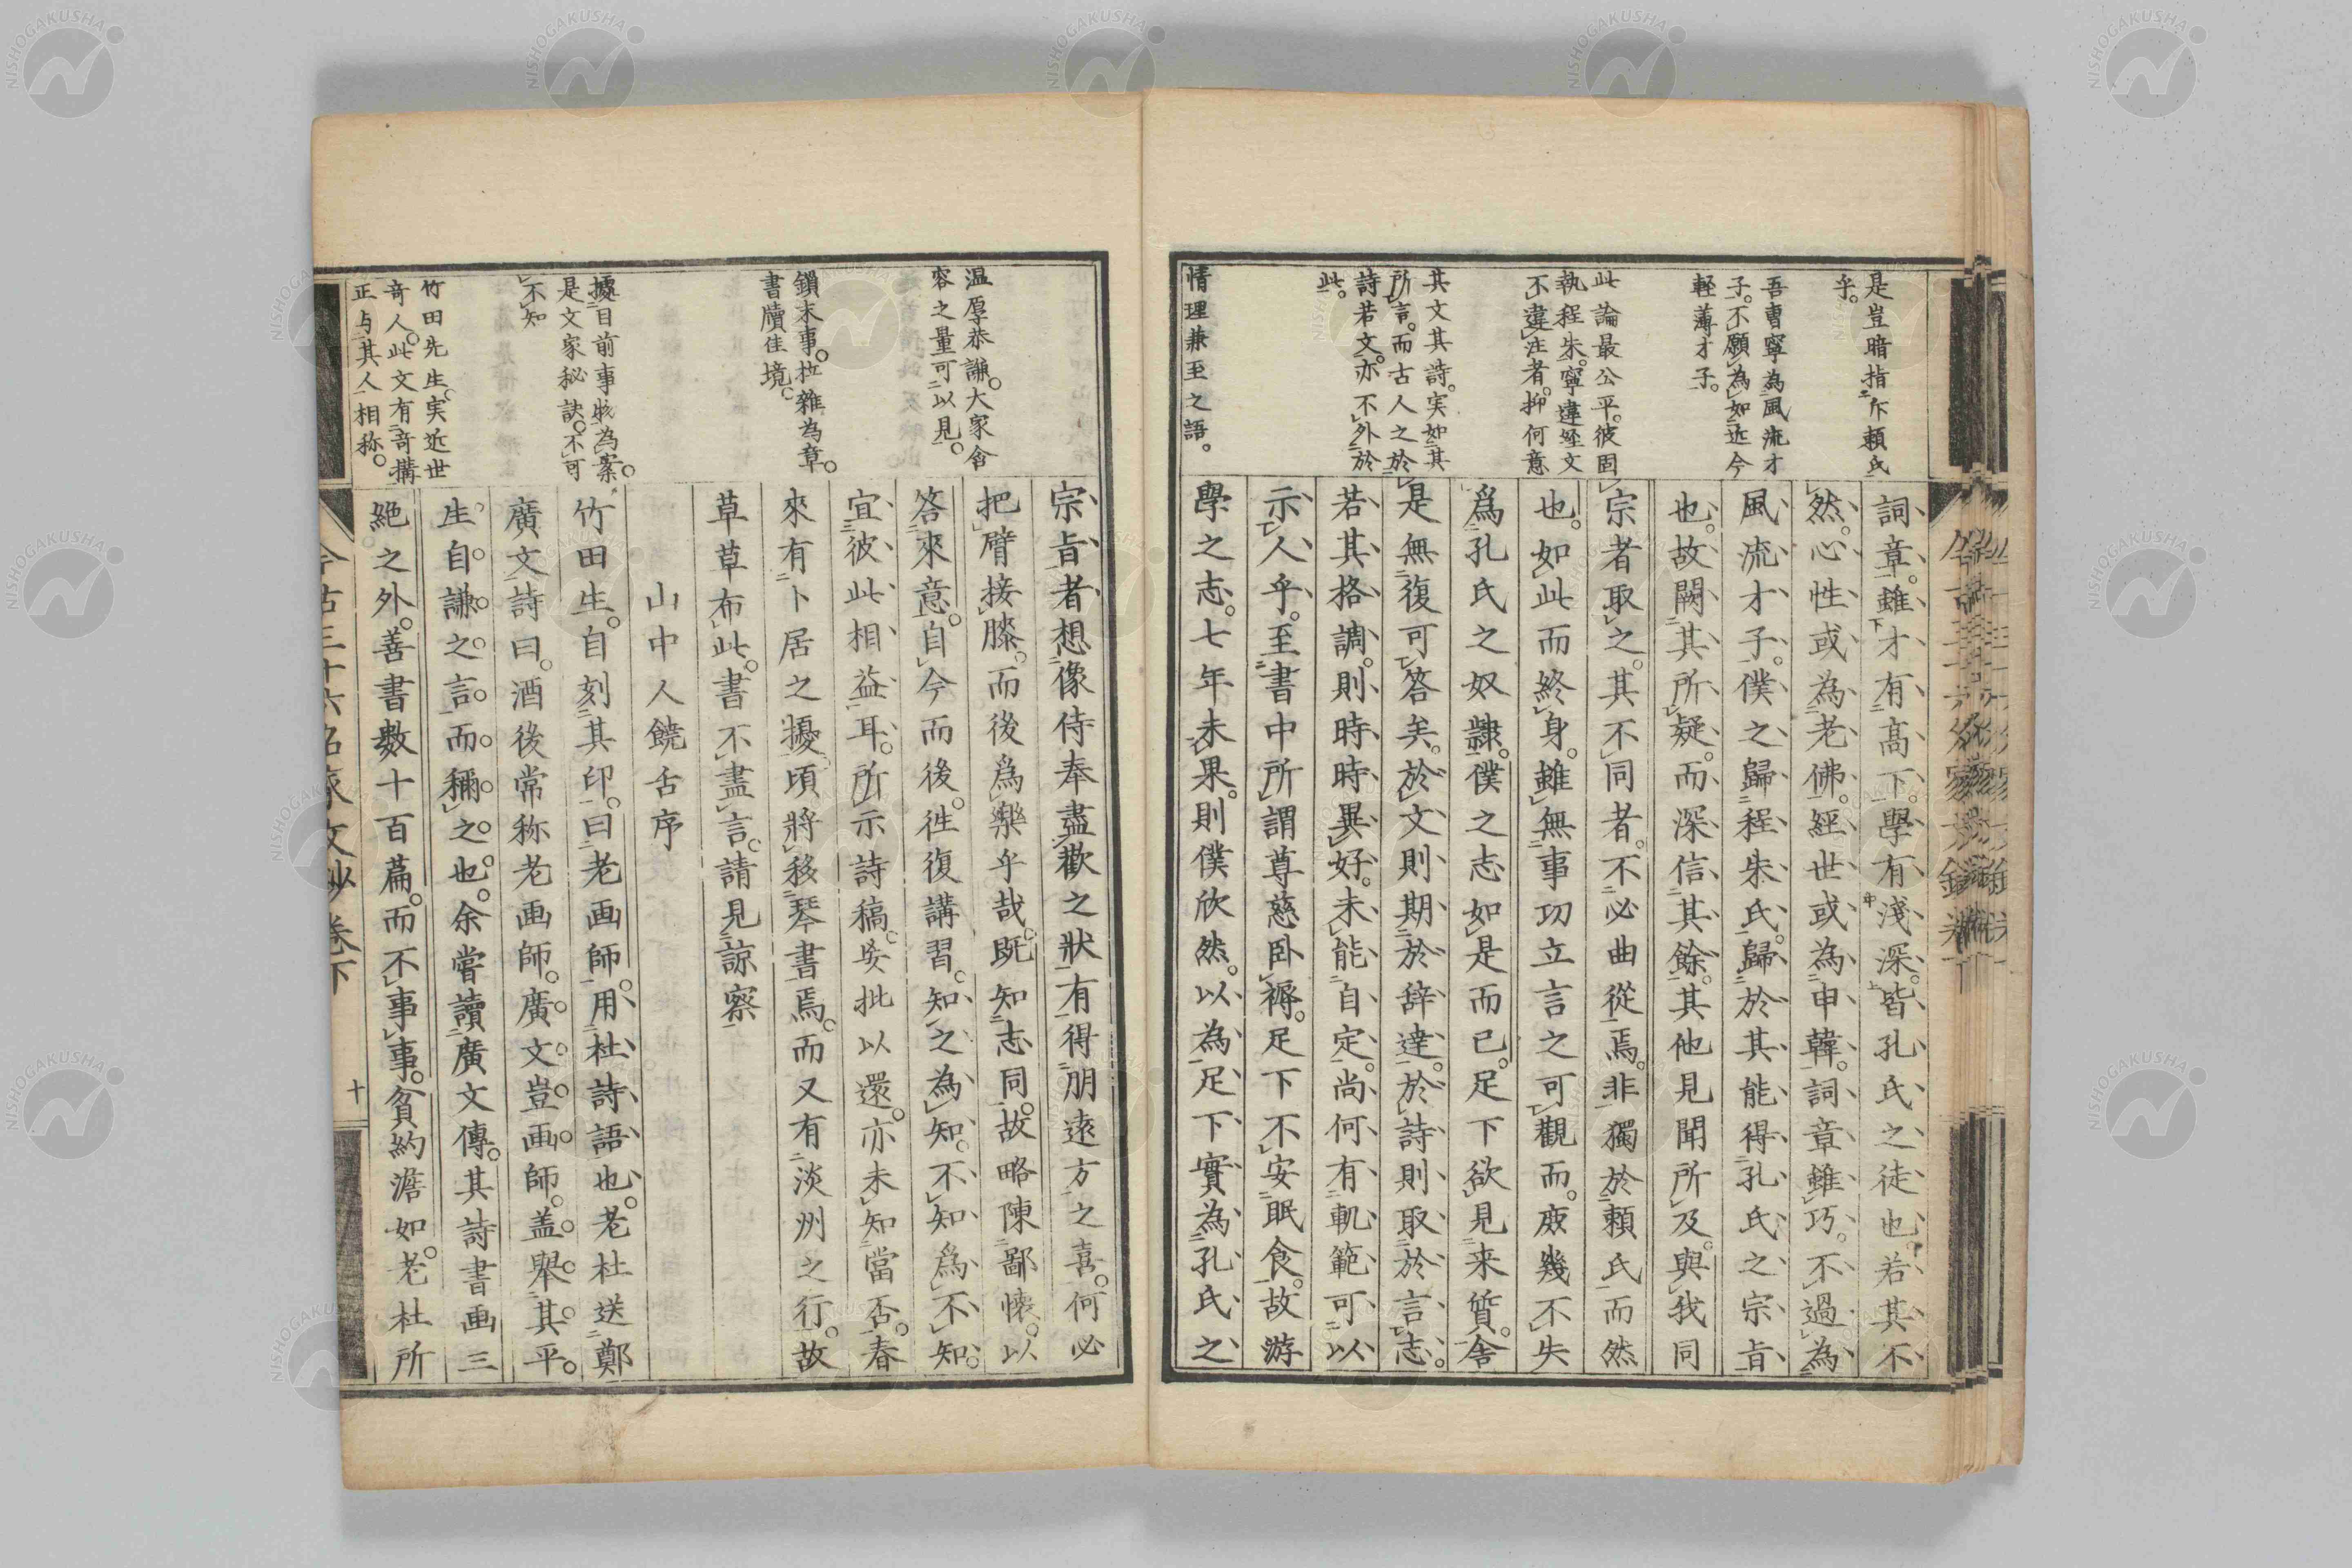 是豈暗指斥頼氏
乎。
吾曹寧為風流才
子。不願為如近今
輕薄才子。
此論最公平。彼固
執程朱。寧違経文
不違注者。抑何意
其文其詩。実如其
所言。而古人之於
詩若文。亦不外於
此。
情理兼至之語。
詞章。雖才有高下。學有淺深。皆孔氏之徒也。若其不
然。心性或為老佛。經世或為申韓。詞章雖巧。不過為
風流才子。僕之歸程朱氏。歸於其能得孔氏之宗旨
也。故闕其所疑。而深信其餘。其他見聞所及。與我同
宗者取之。其不同者。不必曲從焉。非獨於頼氏而然
也。如此而終身。雖無事功立言之可觀而。庶幾不失
爲孔氏之奴隷。僕之志如是而已。足下欲見来質。舍
是無復可答矣。於文則期於辞達。於詩則取於言志。
若其格調。則時時異好。未能自定。尚何有軌範可以
示人乎。至書中所謂尊慈卧褥。足下不安眠食。故游
學之志。七年未果。則僕欣然。以為足下實為孔氏之
温厚恭謙。大家含
容之量可以見。
鎖末事。拉雜為章。
書牘佳境。
據目前事
是文家秘訣。不可
不知
竹田先生。実近世
奇人。此文有奇搆
正与其人相称。
宗旨者想像侍奉盡歡之狀有得朋遠方之喜。何必
把臂接膝。而後爲樂乎哉。既知志同。故略陳鄙懷。以
答來意。自今而後。徃復講習。知之為知。不知爲不知。
宜彼此相益耳。所示詩稿。妄批以還。亦未知當否。春
來有卜居之擾。頃將移琴書焉。而又有淡州之行。故
草草布此。書不盡言。請見諒察
山中人饒舌序
竹田生。自刻其印。曰老画師。用杜詩語也。老杜送鄭
廣文詩曰。酒後常称老画師。廣文豈画師。盖舉其平
生自謙之言。而稱之也。余嘗讀廣文傳。其詩書画三
絶之外。善書數十百篇。而不事事。貧約澹如。老杜所
今古三十六名家文抄卷下
十